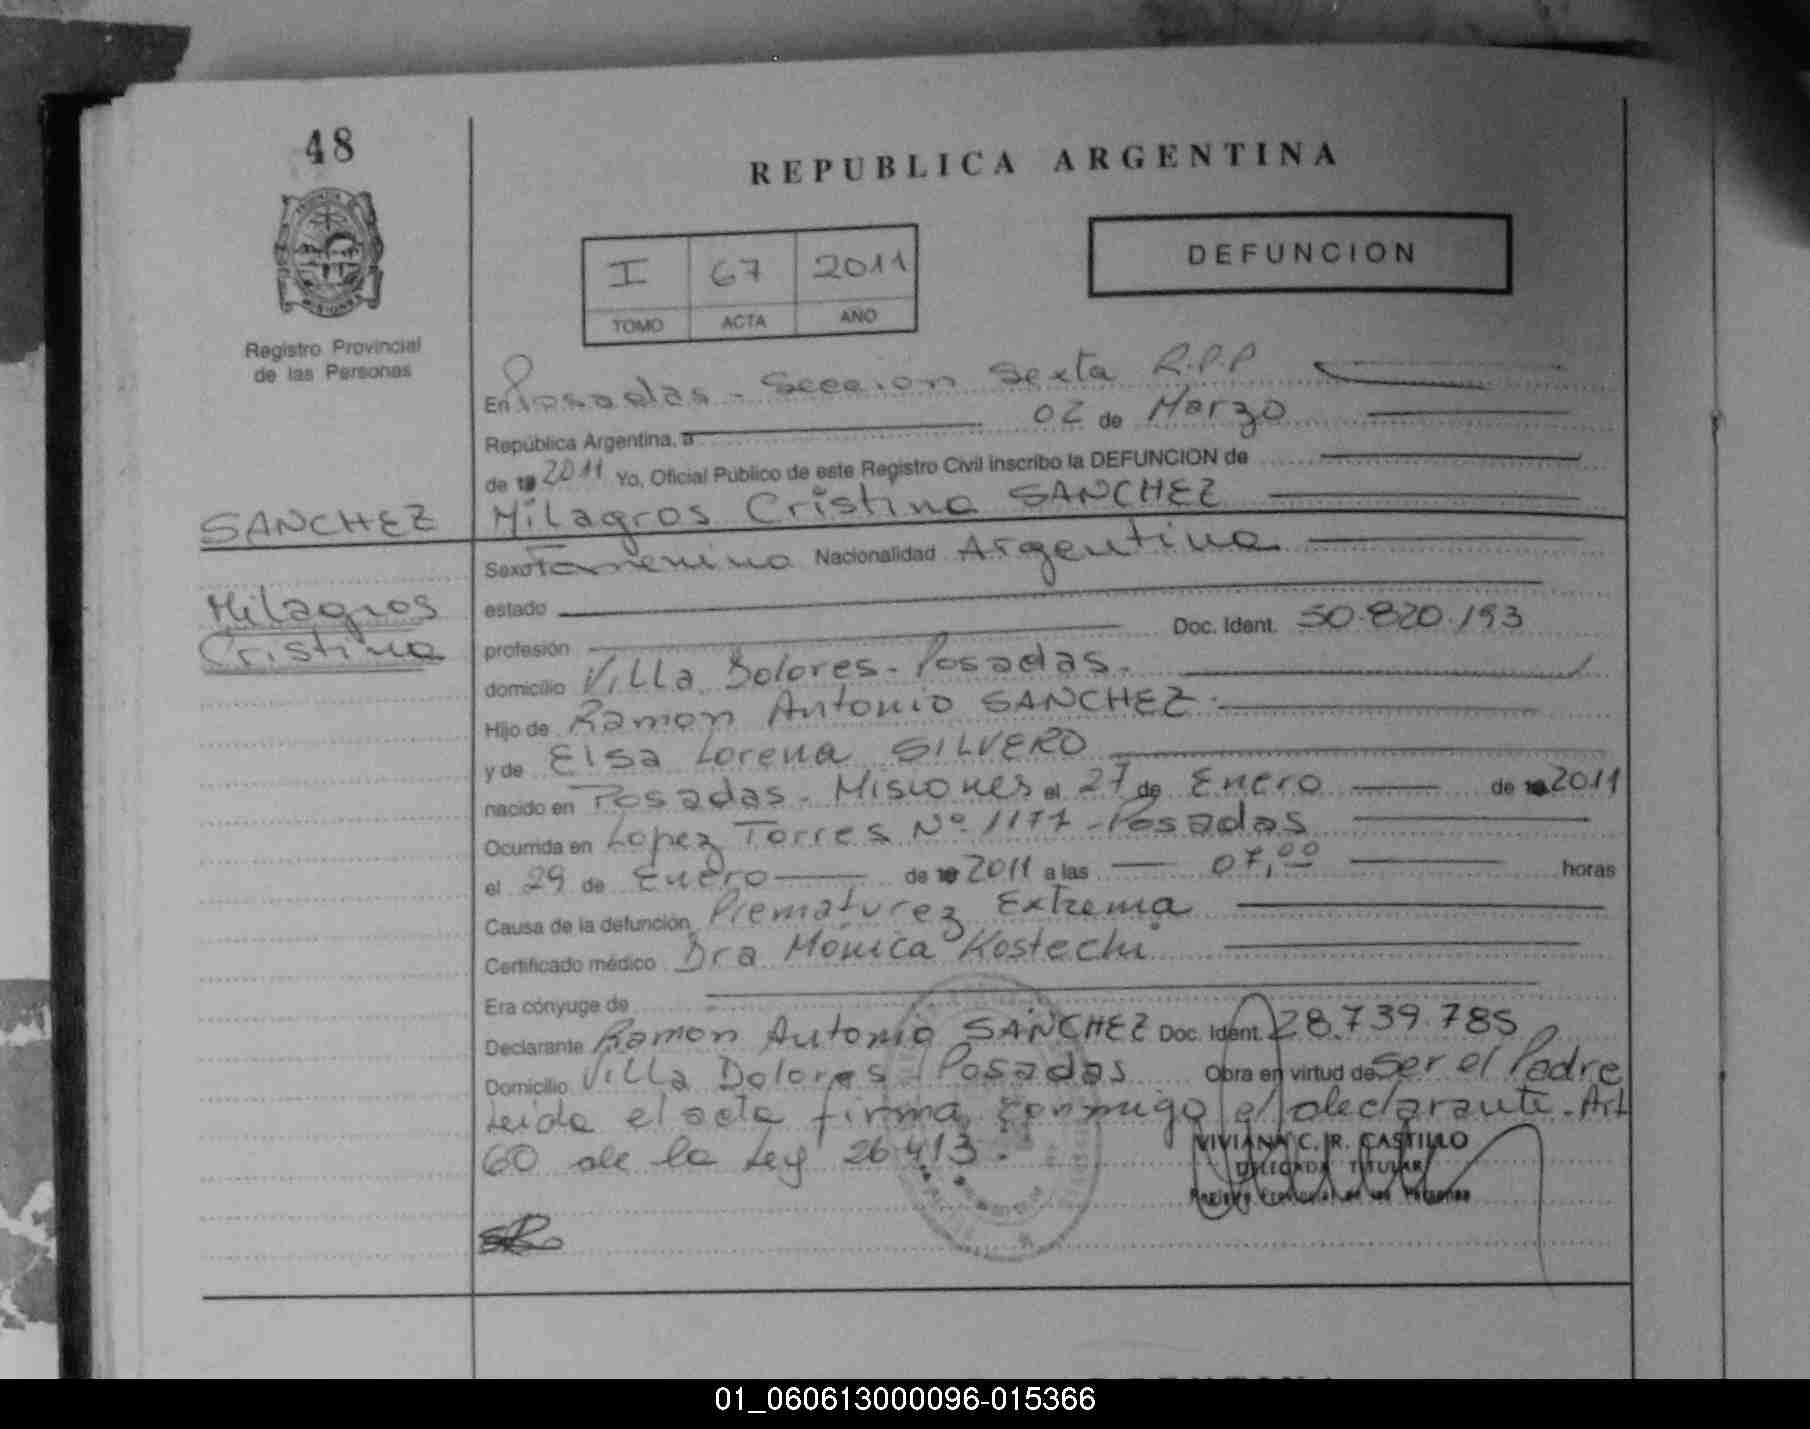 48
REPUBLICA ARGENTINA
DEFUNCION
I 67 2011
TOMO ACTA AÑO
Registro Provincial
de las Personas
En Posadas - Seccion Sexta R.P.P
República Argentina, a 02 de Marzo
de 19 2011 Yo, Oficial Público de este Registro Civil inscribo la DEFUNCION de
SANCHEZ Milagros Cristina SANCHEZ
Sexo Femenino Nacionalidad Argentina
Milagros
Cristina
estado
profesión Doc. Ident. 50.820.193
domicilio Villa Dolores - Posadas.
Hijo de Ramon Antonio SANCHEZ.
y de Elsa Lorena SILVERO
nacido en Posadas - Misiones el 27 de Enero de 19 2011
Ocurrida en Lopez Torres Nº 1177 - Posadas
el 29 de Enero de 19 2011 a las 07,00 horas
Causa de la defunción Prematurez Extrema
Certificado médico Dra Mónica Kostechi
Era cónyuge de
Declarante Ramon Antonio SANCHEZ Doc. Ident. 28.739.785
Domicilio Villa Dolores - Posadas Obra en virtud de Ser el Padre
Leida el acta firma conmigo el declarante. Art
60 de la Ley 26413.
VIVIANA C. R. CASTILLO
DELEGADA TITULAR
Registro Provincial de las Personas
01_060613000096-015366